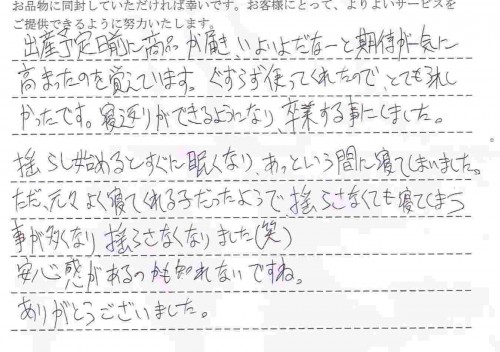 お品物に同封していただければ幸いです。お客様にとって、よりよいサービスを
ご提供できるように努力いたします。
出産予定日前に商品が届きいよいよだなーと期待が一気に
高まったのを覚えています。ぐずらず使ってくれたので、とてもうれし
かったです。寝返りができるようになり、卒業する事にしました。
揺らし始めるとすぐに眠くなり、あっという間に寝てしまいました。
ただ、元々よく寝てくれる子だったようで、揺らさなくても寝てしまう
事が多くなり揺らさなくなりました(笑)
安心感があるのかも知れないですね。
ありがとうございました。